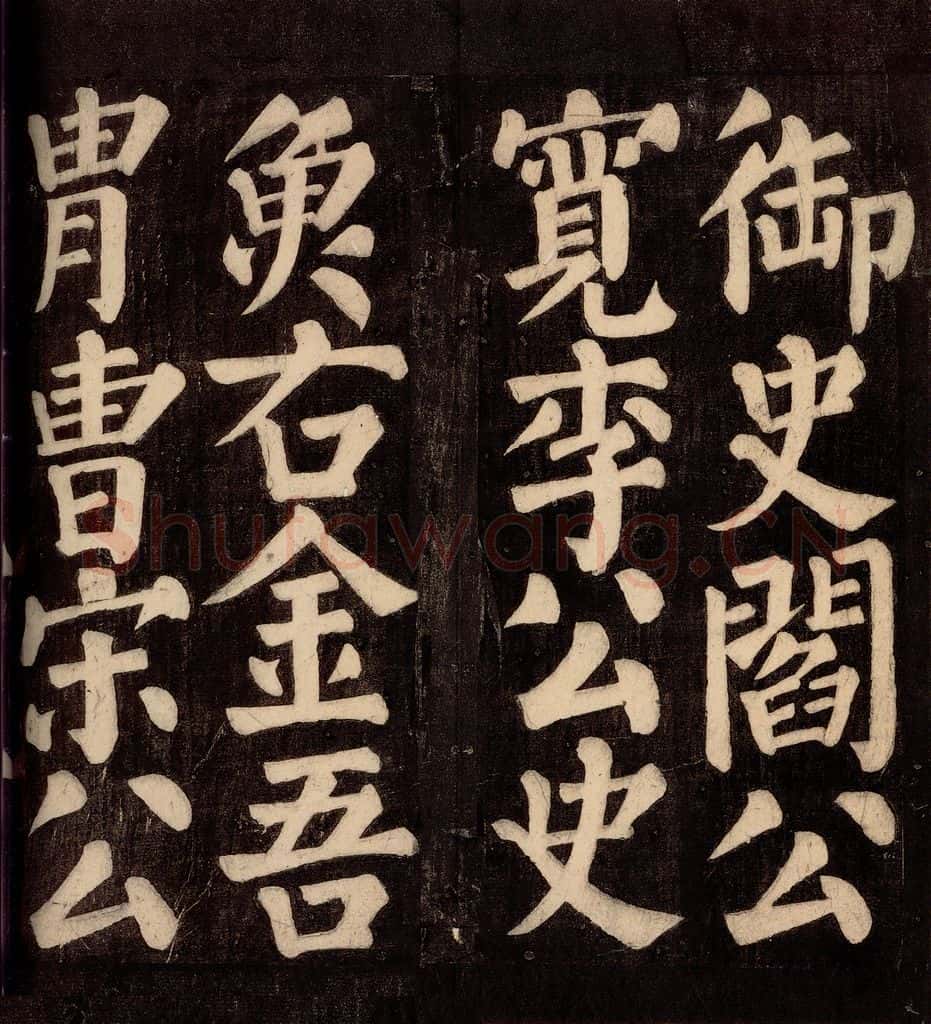 御史閻公
寬李公史
魚右金吾
胄曹宋公
Shufawang.CN